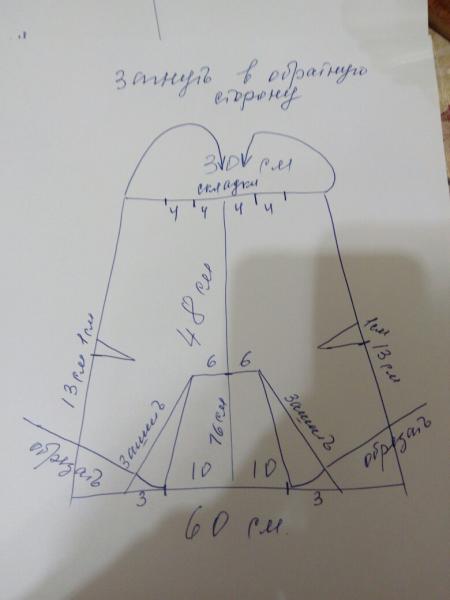 Загнуть в обратную
сторону
30 см
складки
4 4 4 4
48 см
1см 1см
13см 13см
6 6
зашить зашить
16см
обрезать обрезать
10 10
3 3
60 см.